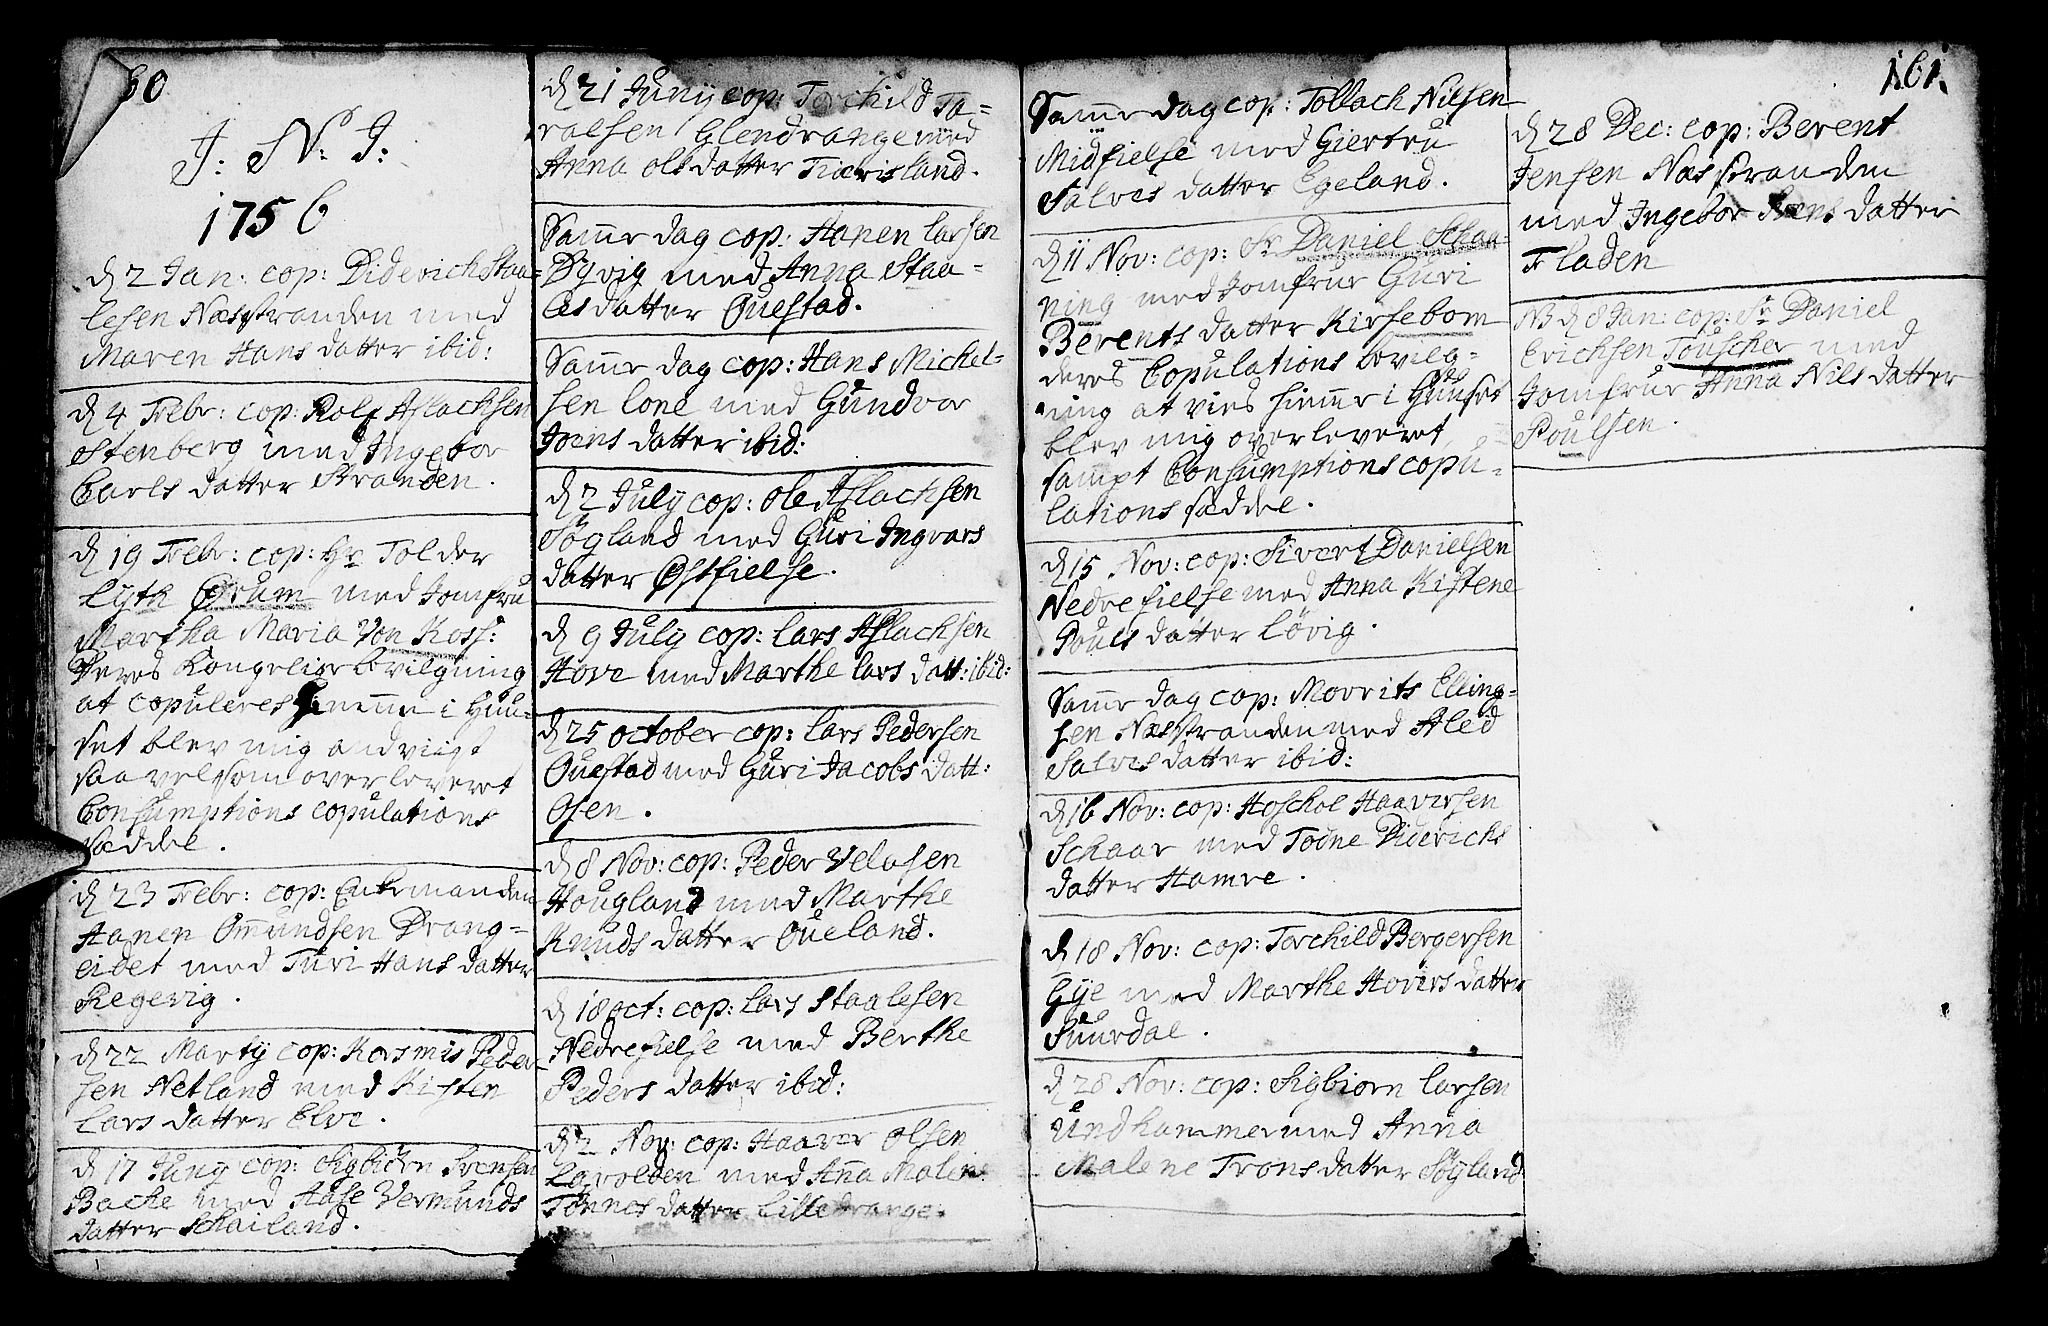 60
J: N: J:
1756
d 2 Jan: cop: Diderich Staa-
lesen Næsstranden med
Maren Hans datter ibid:
d 4 Febr: cop: Rolf Aslachsen
Stenberg med Ingebor
Carls datter Stranden.
d 19 Febr: cop: Hr Tolder
Lyth Orum med Jomfru
Martha Maria Von Koss:
Deres Kongelige bevilgning
at copuleres hiemme i Huu-
set blev mig andviist
saa vel som overleveret
Consumptions copulations
sæddel.
d 23 Febr: cop: Enkemanden
Hanen Omundsen Drang-
eidet med Turi Hans datter
Regevig.
d 22 Martij cop: Korsmis Peder-
sen Netland med Kisten
Lars datter Elve.
d 17 Juny cop: Sigbiørn Svensen
Backe med Aase Vermunds
datter Schailand.
d 21 Junij cop: Torchild Ta-
ralsen Glendrange med
Anna ols datter Tiærisland.
Samme dag cop: Hanen Larsen
Dyvig med Anna Staa-
les datter Questad.
Samme dag cop: Hans Michel-
sen Lone med Gundvor
Joens datter ibid:
d 2 July cop: Ole Aslachsen
Søgland med Guri Ingvars
datter Østfielse.
d 9 July cop: Lars Aslachsen
Hove med Marthe Lars datt: ibid:
d 25 october cop: Lars Pedersen
Questad med Guri Jacobs datt:
Osen.
d 8 Nov: cop: Peder Velosen
Hougland med Marthe
Knuds datter Oueland.
d 18 oct: cop: Lars Staalesen
Nedrefielse med Berthe
Peders datter ibid:
d 2 Nov: cop: Haaver Olsen
med Anna Malene
Tønnes datter Lille drange.
161
Samme dag cop: Tollach Nilsen
Midfielse med Giertru
Salves datter Egeland.
d 11 Nov: cop: Sr Daniel Schaa-
ning med Jomfrue Guri
Berents datter Kirsebom
deres Copulations bevilg-
ning at vies hiemme i Huuset
blev mig overleveret,
sampt Consumptions copu-
lations sæddel.
d 15 Nov: cop: Sivert Danielsen
Nedrefielse med Anna Kistene
Pouls datter Løvig.
Samme dag cop: Morrits Elling-
sen Næsstranden med Aled
Salves datter ibid:
d 16 Nov: cop: Hoschol Haaversen
Schaar med Todne Diderichs
datter Hamre.
d 18 Nov: cop: Torchild Bergersen
Gye med Marthe Hovers datter
Suurdal.
d 28 Nov: cop: Sigbiørn Larsen
Undhammer med Anna
Malene Trons datter Søyland
d 28 Dec: cop: Berent
Jensen Næsstranden
med Ingebor Svens datter
Fladen
NB d 8 Jan: cop: Sr Daniel
Erichsen Touscher med
Jomfrue Anna Nils datter
Poulsen.